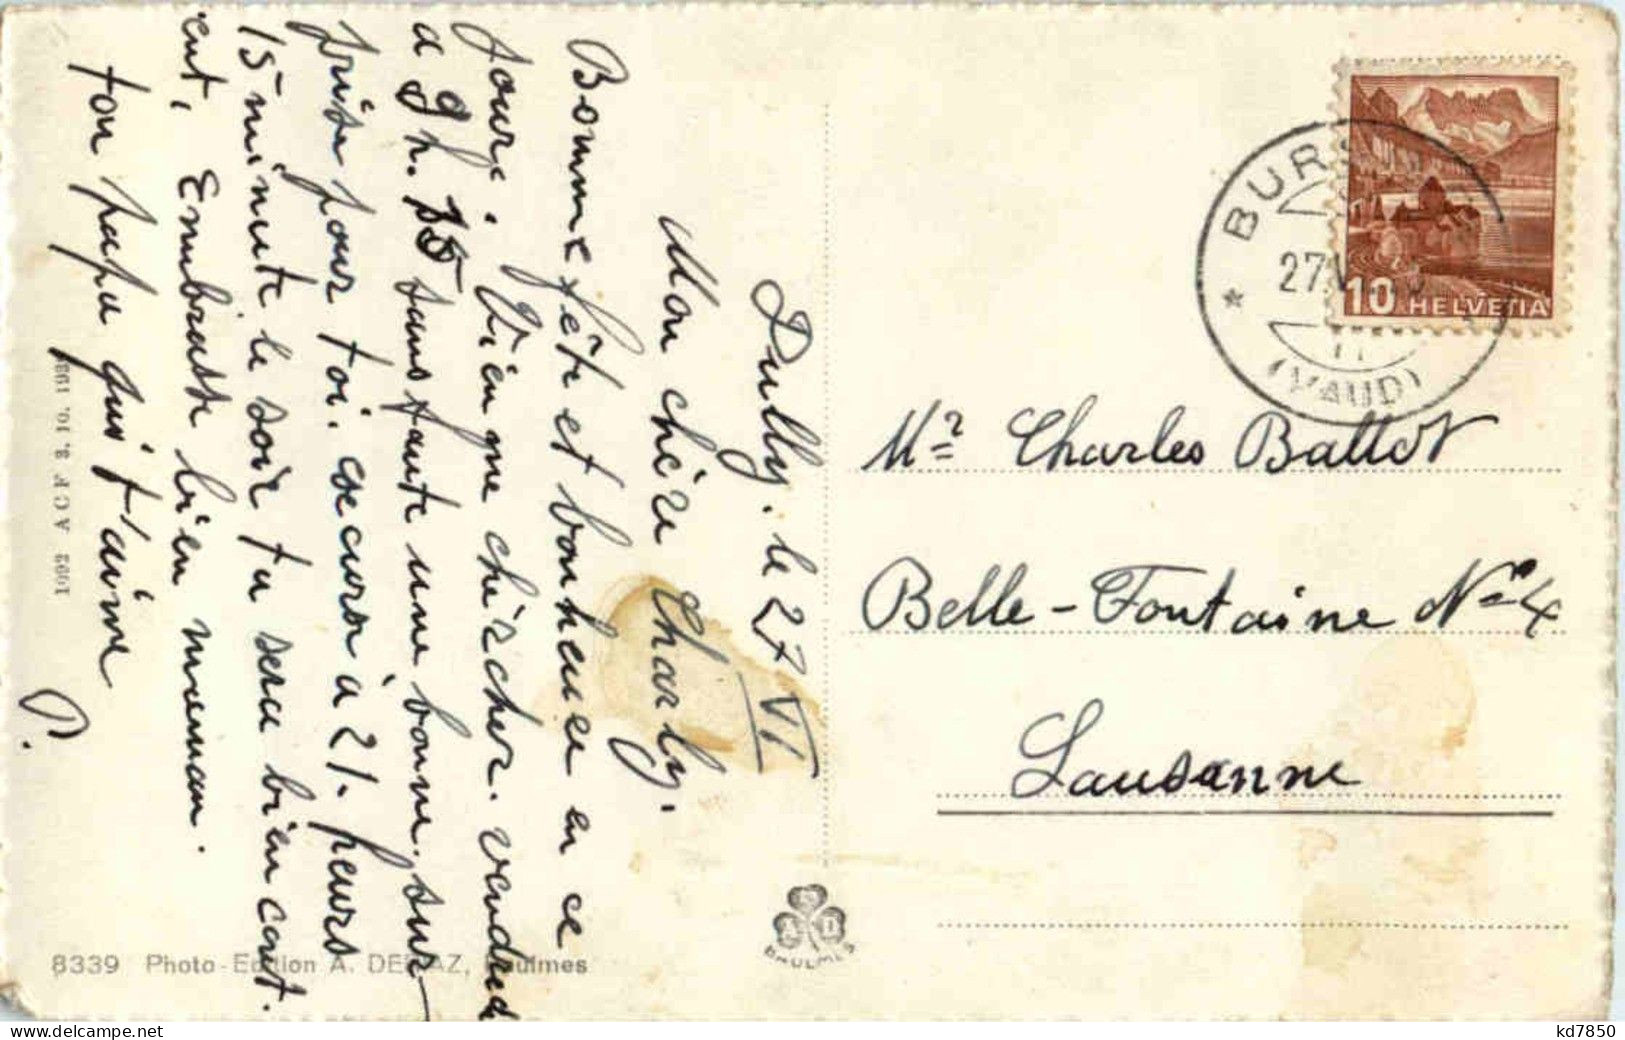 Dully. le 27 VI
Mon chère Charly.
Bonnne fête et bonheur en ce
jour. Vien me chèrcher. vendred
a 9 h. 15 sans faute une bonne. sur-
prise pour toi. se cora à 21. heurs
15 minute le soir tu sera bien cont.
ent, Embrasse bien maman.
ton papa qui t'aime
P.
1093 A C F 8. 10. 1938
8339 Photo-Edition A. DERIAZ, Baulmes
A D
BAULMES
BURS
27 VI
(VAUD)
10 HELVETIA
Mr Charles Ballot
Belle-Fontaine No 4
Lausanne
kd7850